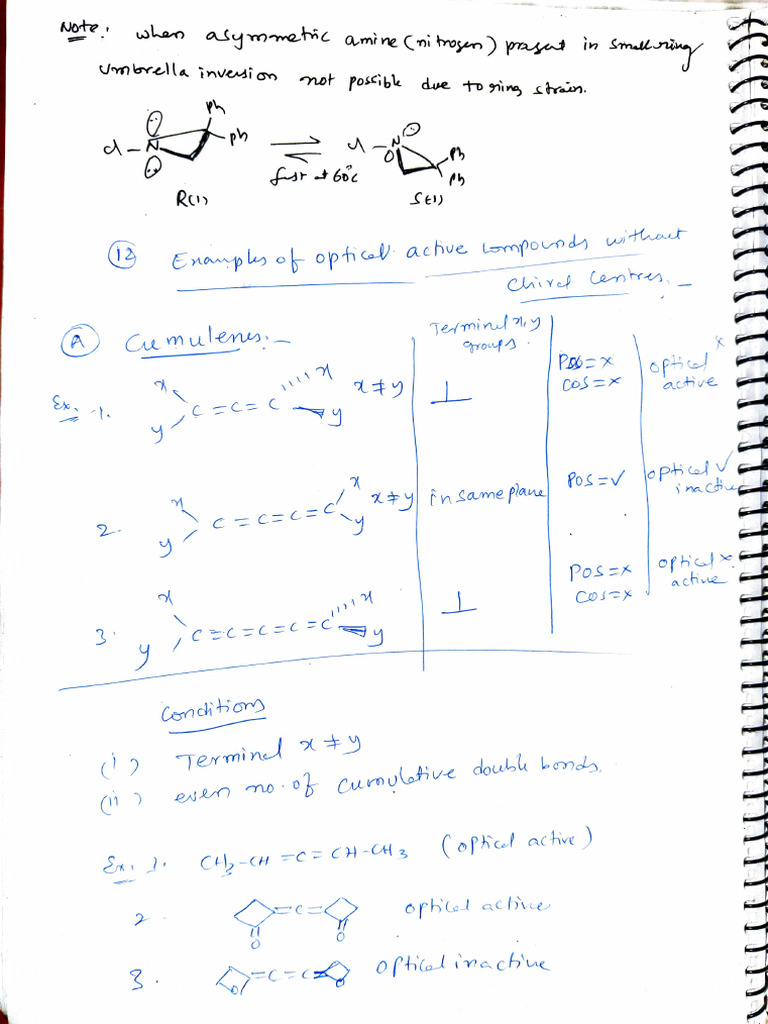 Note: when asymmetric amine (nitrogen) present in small ring
Umbrella inversion not possible due to ring strain.
Ph
Ph
cl-N
fast at 60°c
R(1)
cl-N
Ph
Ph
S(1)
(12) Examples of optical active compounds without
Chiral Centres.-
(A) Cumulenes:-
Terminal x, y
groups.
Ex. 1. x y C=C=C x y x≠y ⊥ POS=x COS=x optical x active
2. x y C=C=C=C x y x≠y in same plane POS=✓ optical ✓ inactive
3. x y C=C=C=C=C x y ⊥ POS=x COS=x optical x active
Conditions
(i) Terminal x≠y
(ii) even no. of cumulative double bonds.
Ex. 1. CH3-CH=C=CH-CH3 (optical active)
2. =C= O O optical active
3. =C=C= O O optical inactive